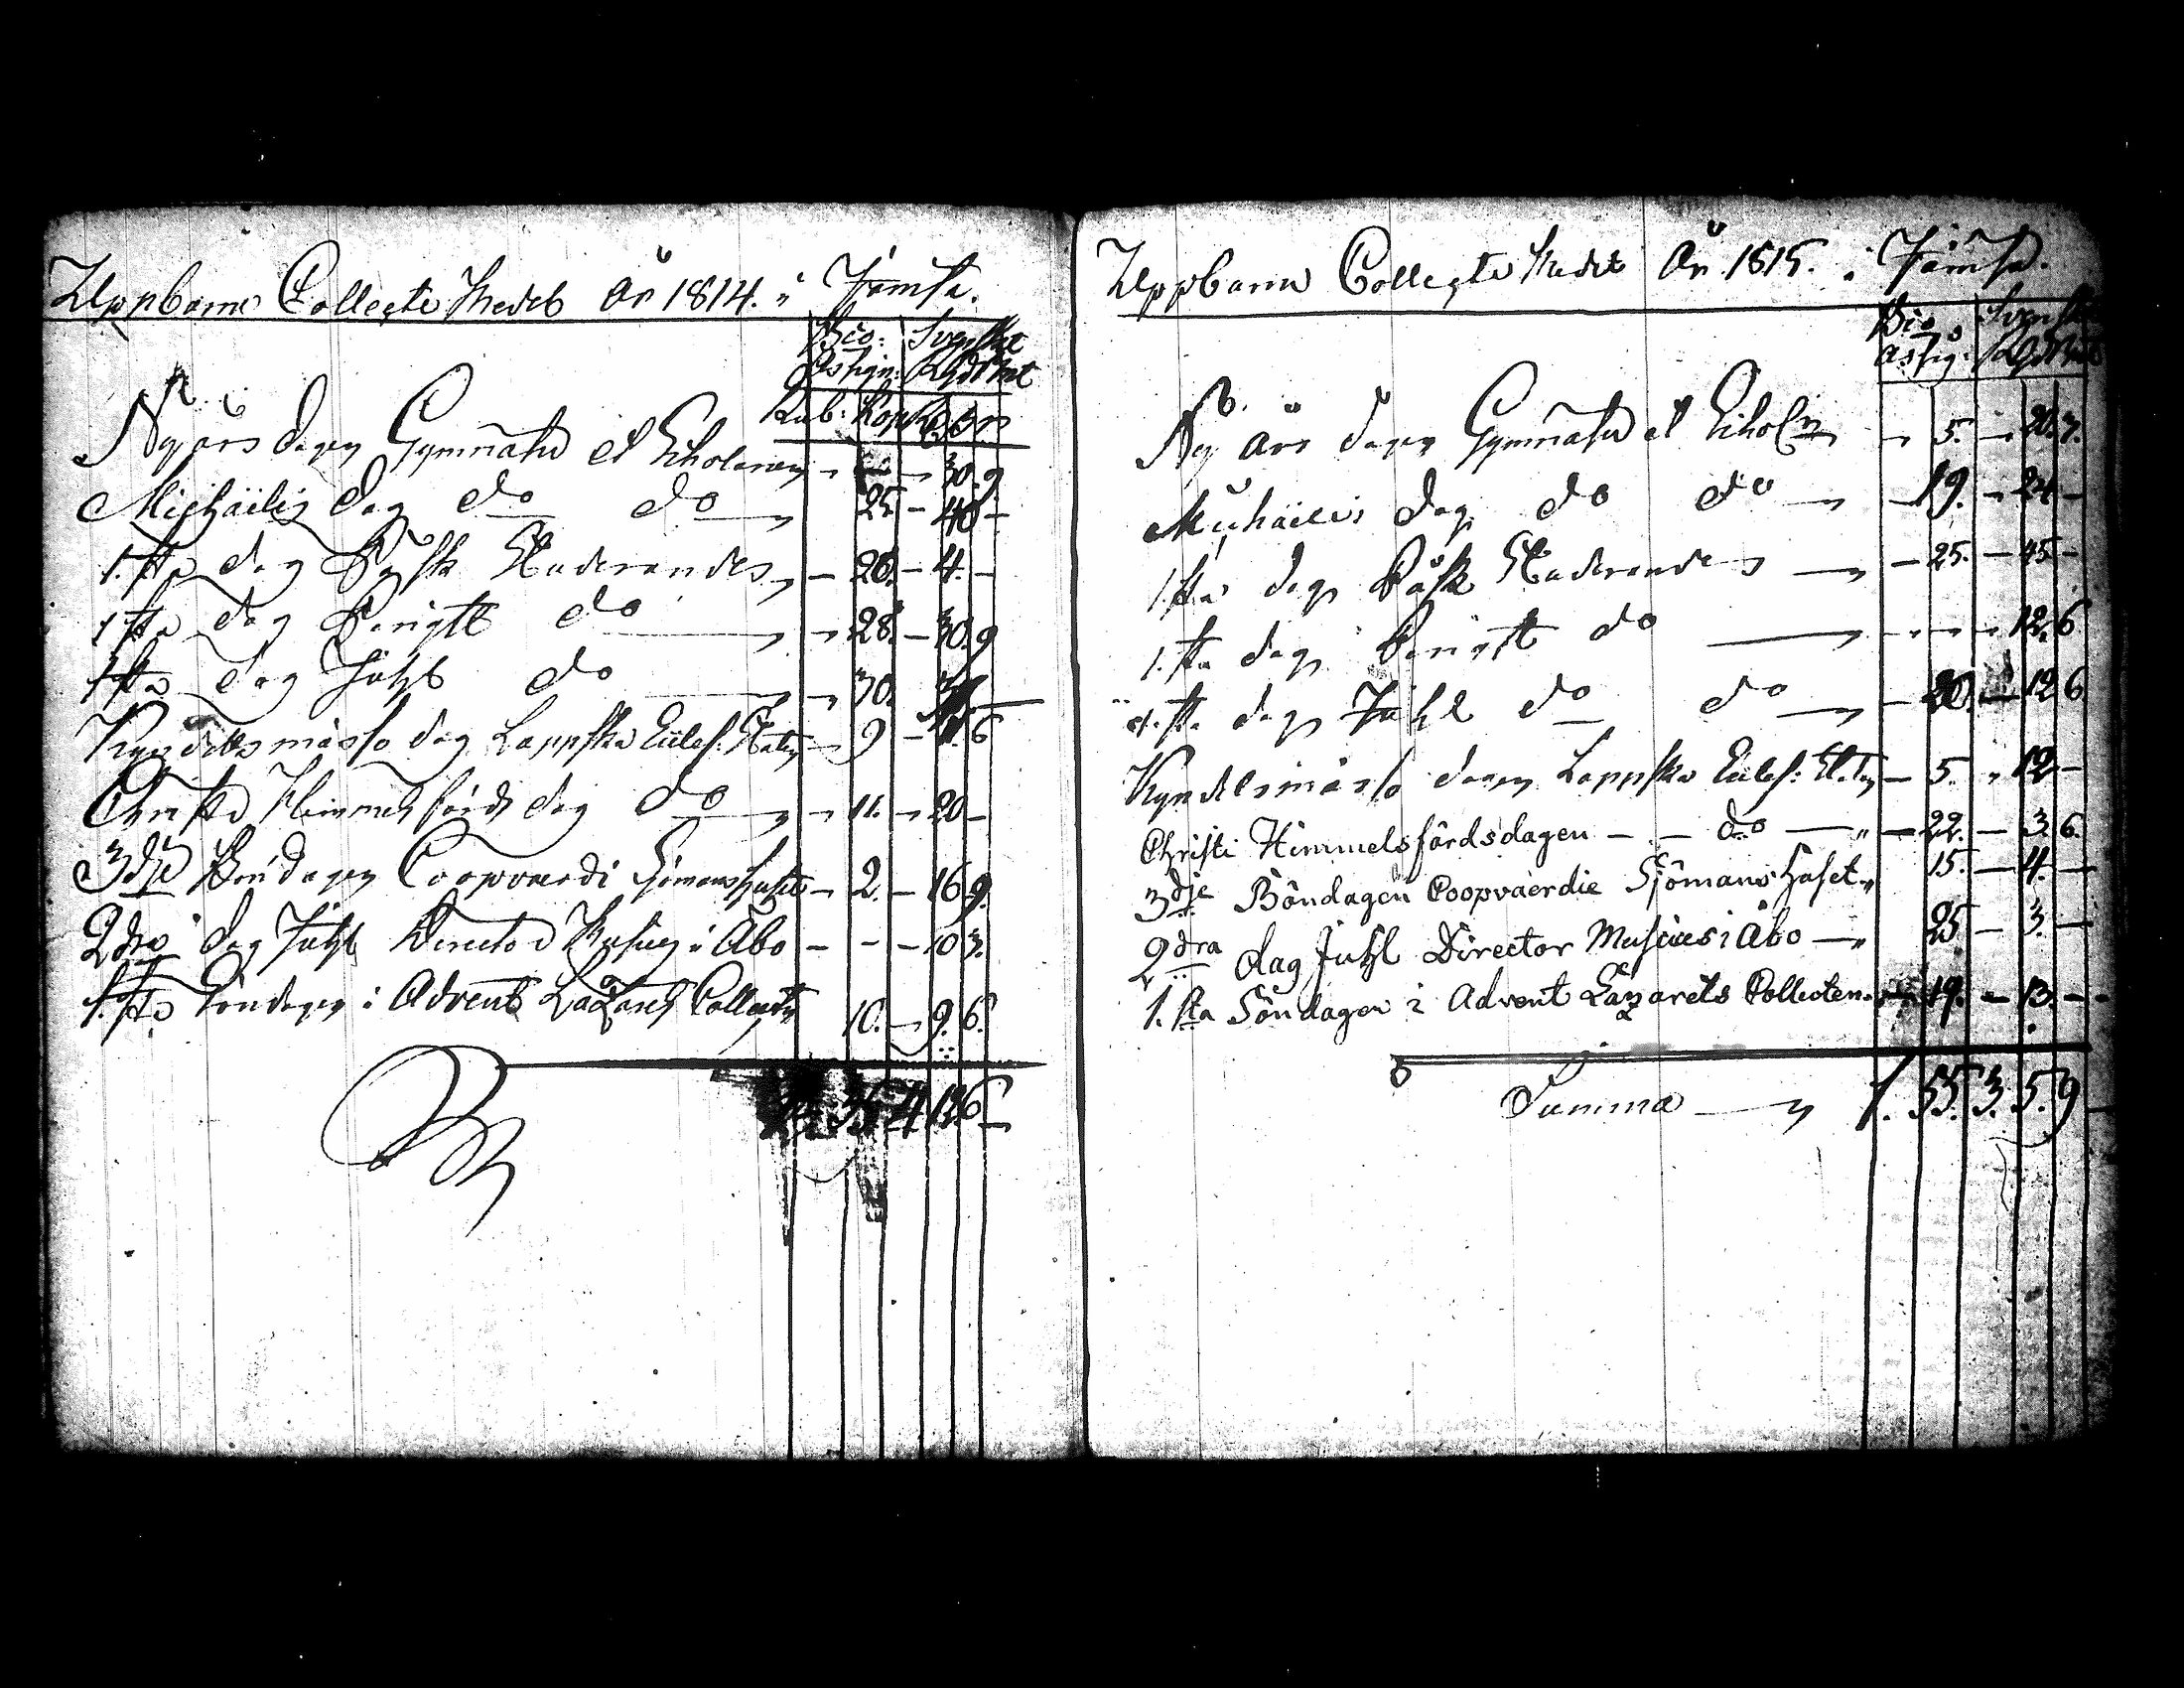 Uppburne Collecte Medel År 1814. i Jämsä.
Bco: Svenskt
Assign: Rgdtmt
Rub: Kop
Nyårs dagen Gymnasie et Scholarum " 30. 9
Michaëlis dag do do " 25. — 40 —
1.sta dag Påsk Studerandes " — 20. — 4. —
1.sta dag Pingst do " 28. — 30. 9
1sta dag Juhl do " 30.
Kyndelsmässo dag Lappska Eccles: Staten 9 — 6
Christi Himmelsfärds dag do " 11. 20 —
3dje Böndagen Coopvaerdi Sjömanshuset — 2. — 16 9.
2dra dag Juhl Director Musices i Åbo — — — 10 3.
1.sta Söndagen i Advent Lazarets Collecten 10. — 9. 6.
4 6
Uppburne Collecte Medel År 1815. i Jämsä.
Bco Svenskt
Assig: Rgdtmt
Ny års dagen Gymnasie et Schol " 5. — 20. 7.
Michaëlis dag do do " — 19. — 24 —
1.sta dag Påsk Studerandes — " — 25. — 45 —
1.sta dag Pingst do — " " 12. 6
1.sta dag Juhl do do — " — 20. — 12 6
Kyndelsmässo dagen Lappska Eccles: Staten — 5. " 12 —
Christi Himmelsfärdsdagen — — do — " — 22. — 3. 6.
3dje Böndagen Coopvaerdie Sjömans Huset " 15. — 4. —
2dra dag Juhl Director Musices i Åbo — " 25 — 3. —
1.sta Söndagen i Advent Lazarets Collecten. 19. — 13. —
Summa — " 1. 55. 3. 5. 9